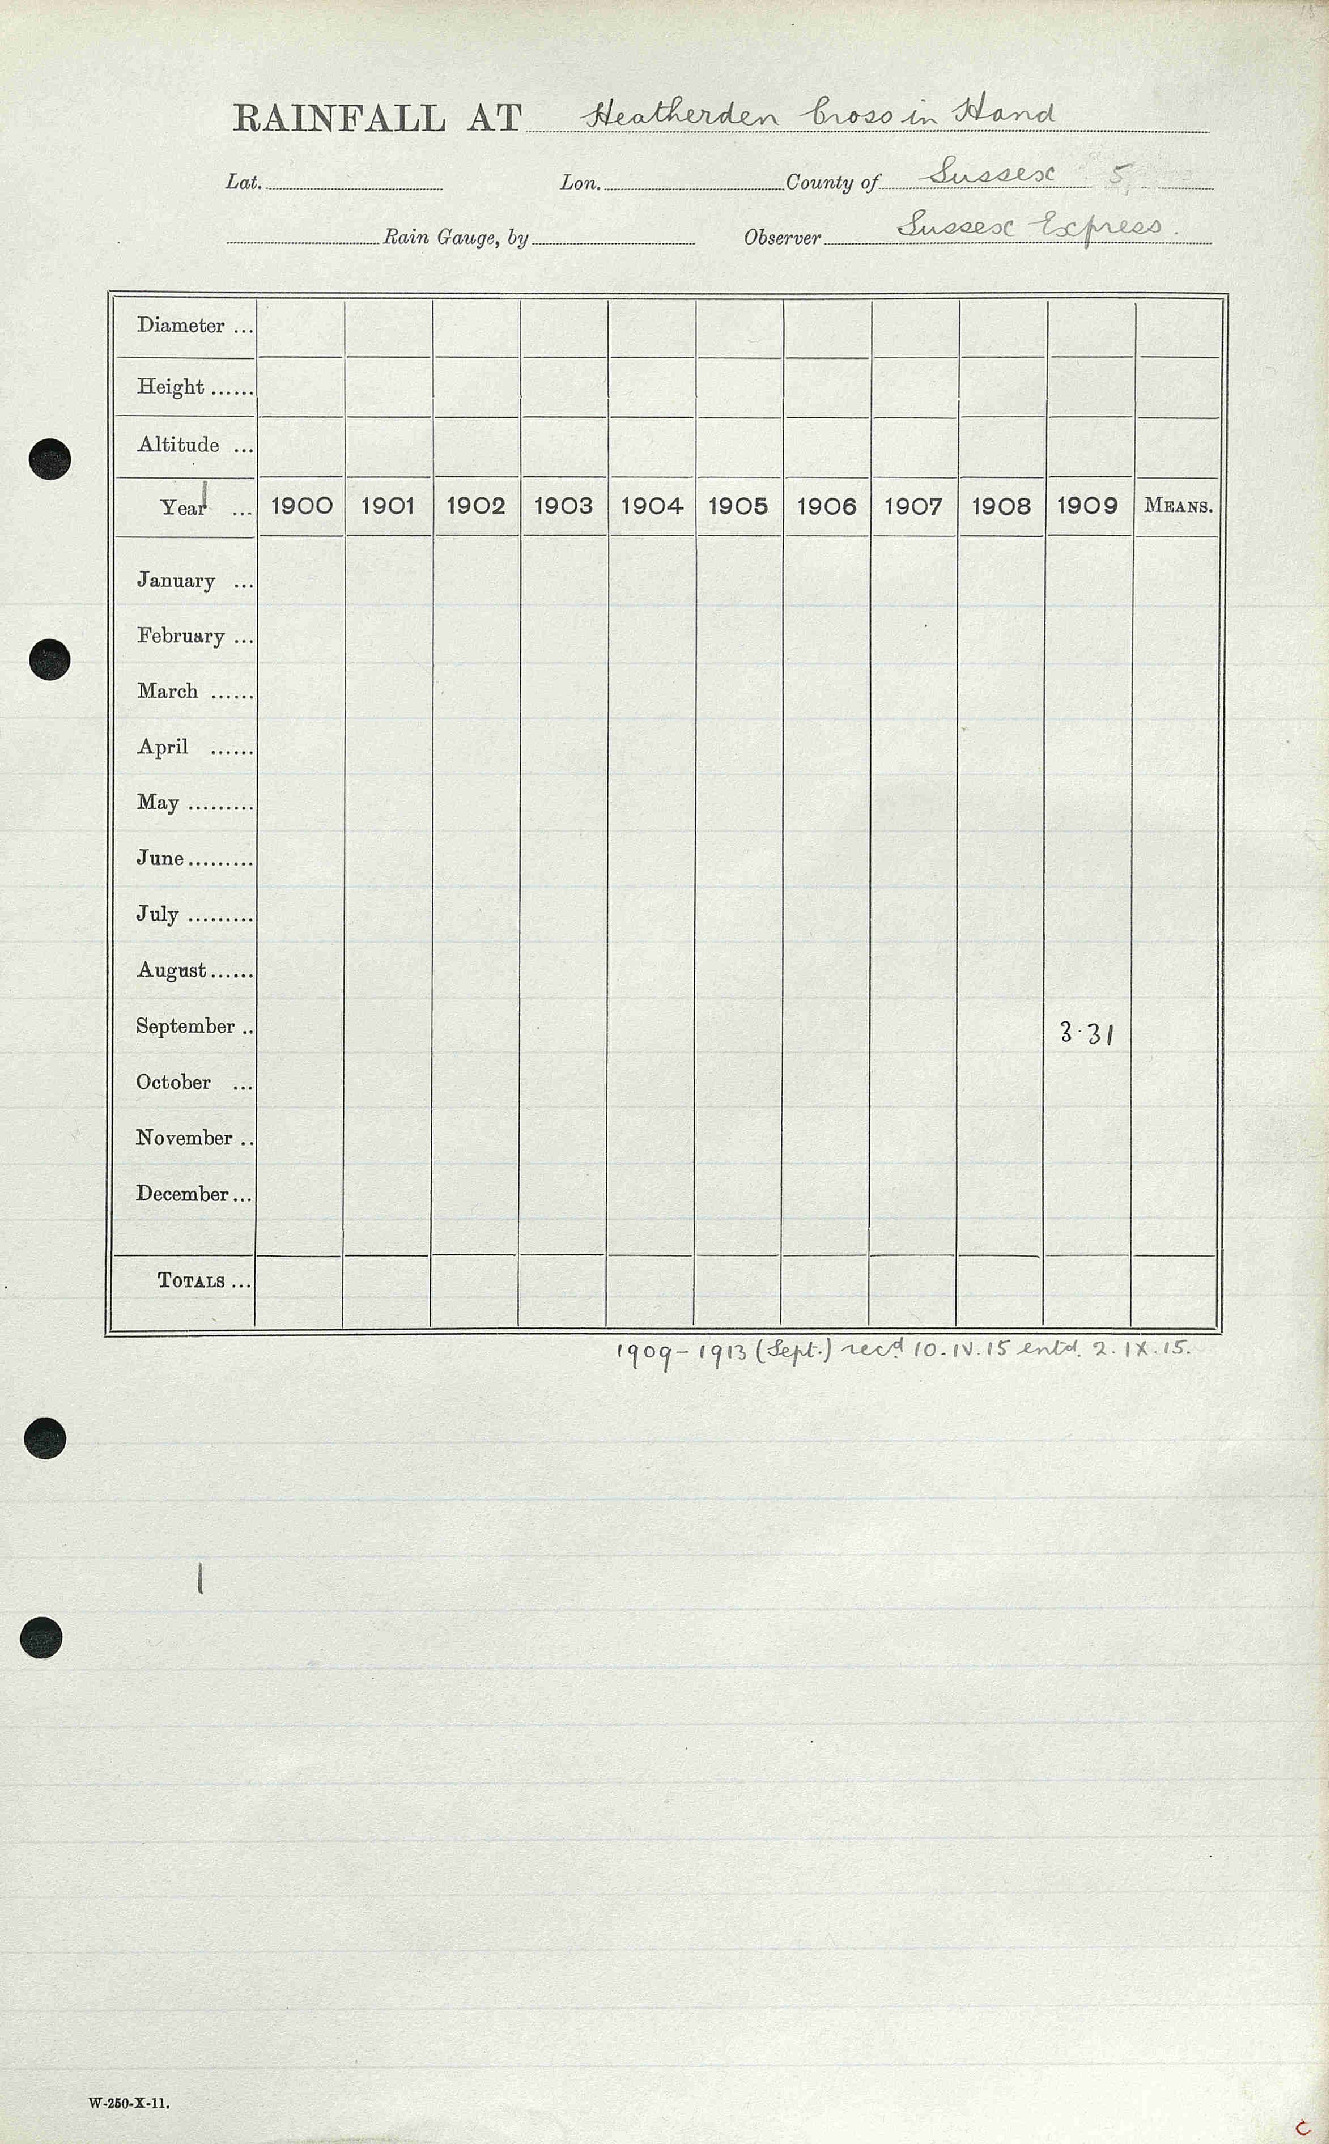 RAINFALL AT Heatherden Cross in Hand
Lat. Lon. County of Sussex 5
Rain Gauge, by Observer Sussex Express.
Diameter ...
Height ......
Altitude ...
Year ... 1900 1901 1902 1903 1904 1905 1906 1907 1908 1909 MEANS.
January ...
February ...
March ......
April ......
May .........
June.........
July .........
August......
September .. 3.31
October ...
November ..
December...
TOTALS ...
1909-1913 (Sept.) recd. 10.IV.15 entd. 2.IX.15.
W-250-X-11.
C